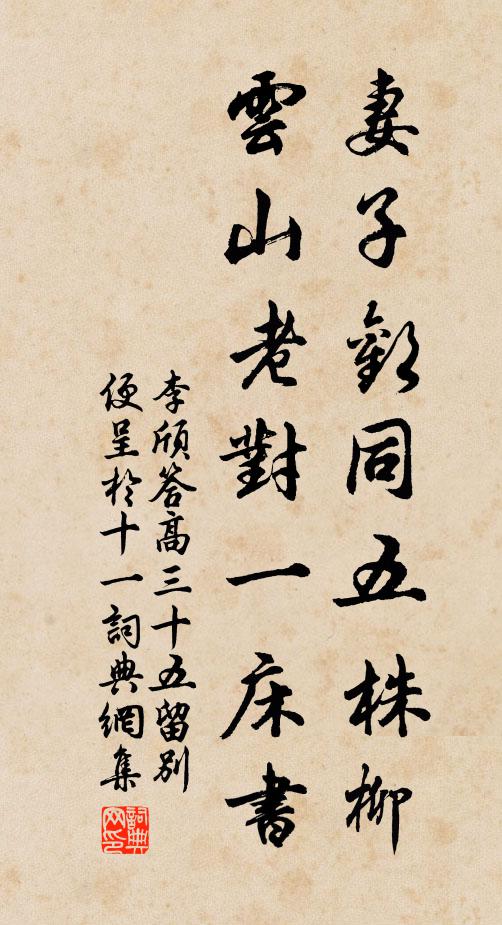 妻子歡同五株柳
雲山老對一床書
李頎答高三十五留別
便呈於十一詞典網集
詞典网印